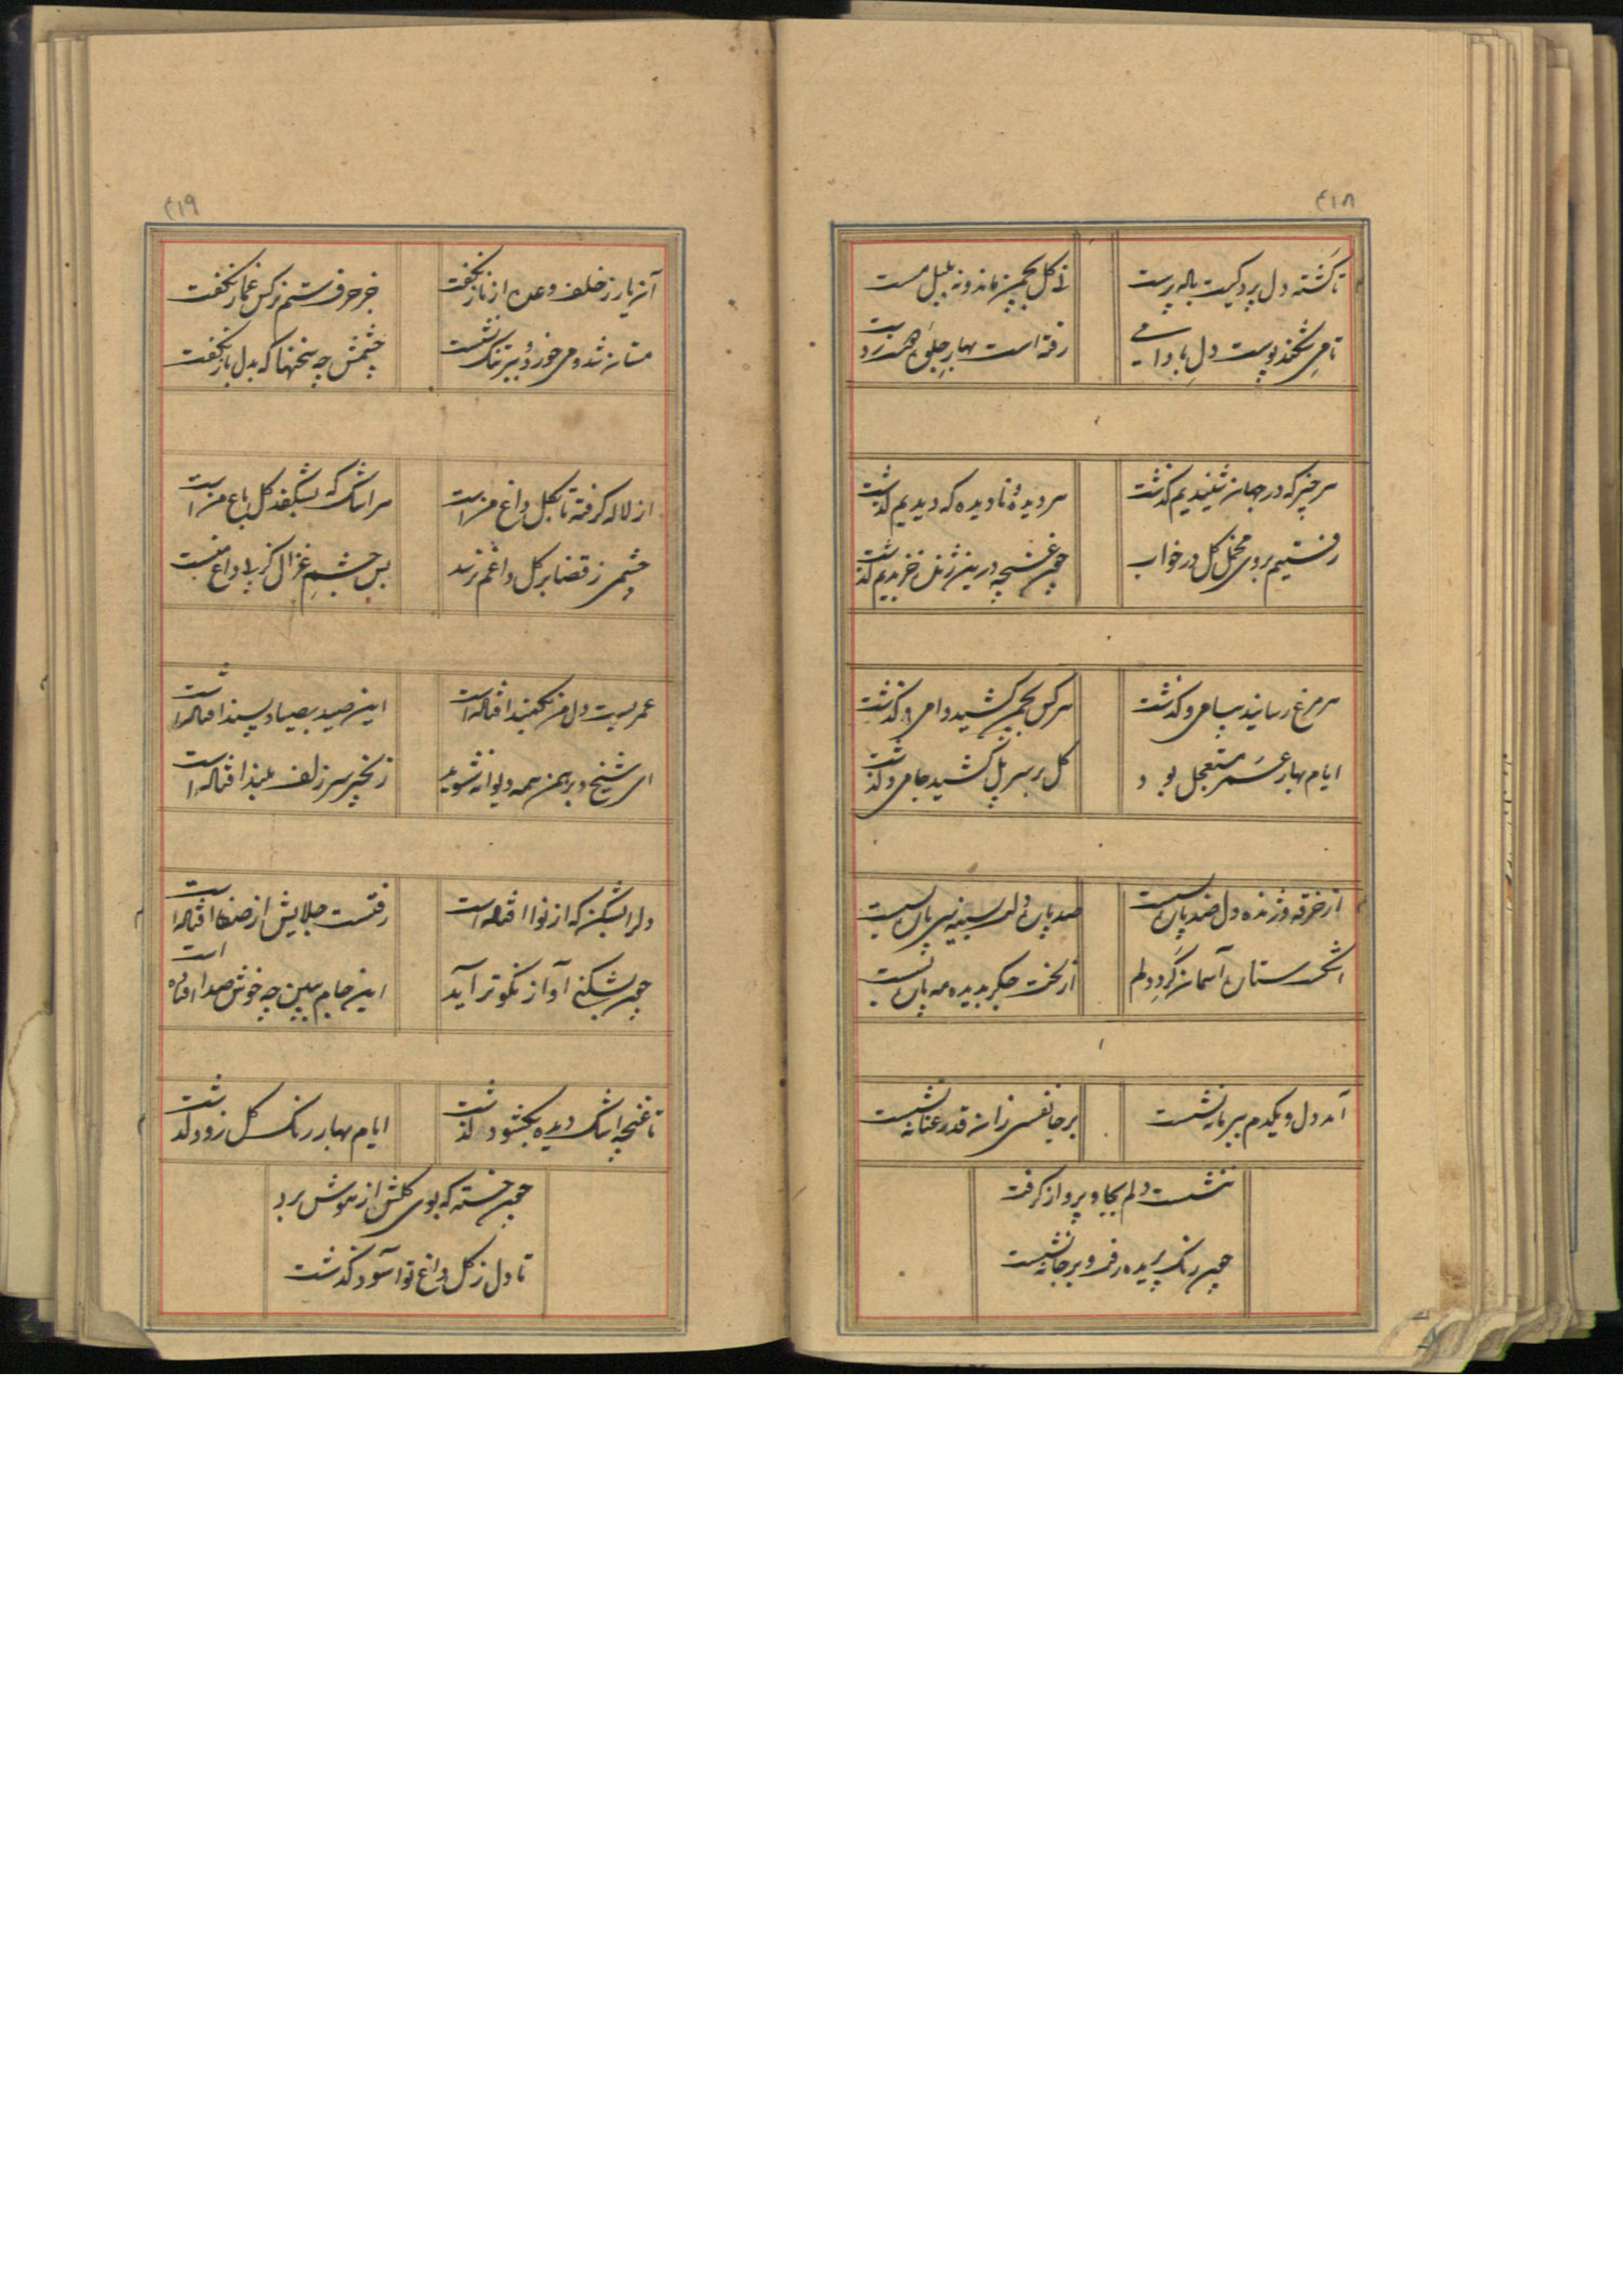 ۴۱۸
تا گشته دل پرد کیت باله پرست
نی گل بچمن ماند و نه بلبل مست
تا می شکفد پوست دل بادامی
رفته است بهار جلوه دست
هر چیز که در جهان شنیدیم گذشت
هر دیده و نادیده که دیدیم گذشت
رفتیم بروی مخمل گل در خواب
چون غنچه درین
هر مرغ رسانید پیامی و گذشت
هر کس بچمن کشید دامی و گذشت
ایام بهار عمر مستعجل بود
گل بر سر پل کشید جامی و گذشت
از خرقه و ژنده دل صد پاره بسیست
صد پاره دلی بسینه سی پاره بسیست
اشک مستان آسمان گردد دلم
از لخت جگر بدیده مه پاره بسیست
آمد دل و یکدم ببر ما ننشست
بر جا نفسی زان قد رعنا ننشست
ننشست دلم بجا و پرواز گرفت
چون رنگ پریده رفت و بر جا ننشست
۴۱۹
آن یار ز خلف وعده از ناز نگفت
جز حرف ستم نرگس غماز نگفت
مستانه شد و می خورد و بتر تنگ نشست
چشمش چه سخنها که بدل باز نگفت
از لاله گرفته تا بگل داغ منست
هر اشک که بشکفد گل باغ منست
چشمی ز قضا بر گل داغم نرسد
بس چشم غزال کربلا داغ منست
عمریست دل من بکمند افتاده است
این صید بصیاد پسند افتاده است
ای شیخ و برهمن همه دیوانه شوید
زنجیر سر زلف بلند افتاده است
دل را بشکن که از نوا افتاده است
رفتست جلایش از صفا افتاده است
چون بشکنی آواز نکوتر آید
این جام ببین چه خوش صدا افتاده است
تا غنچه اشک دیده بگشود گذشت
ایام بهار رنگ گل زود گذشت
چون خسته که بوی گلش از هوش برد
تا دل ز گل داغ تو آسود گذشت